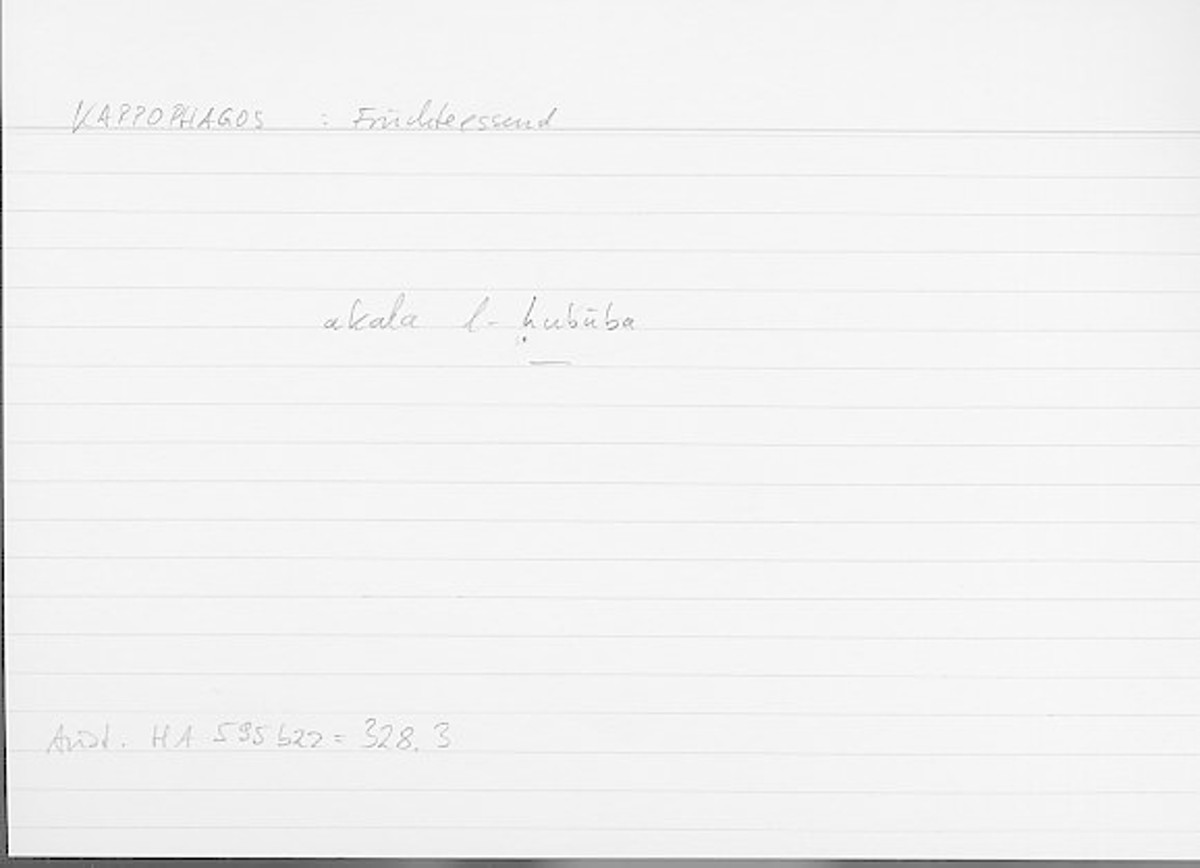 KARPOPHAGOS : Früchteessend
akala l-ḥubūba
Arist. HA 595b22 = 328.3